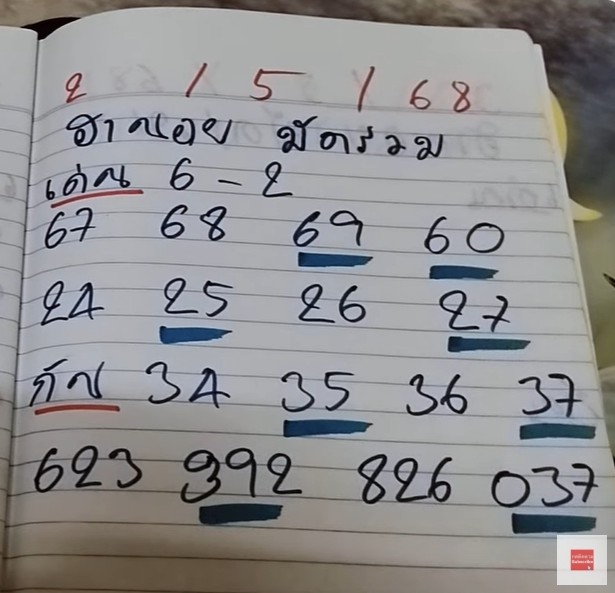 2 / 5 / 68
ฮานอย มัดรวม
เด่น 6 - 2
67 68 69 60
24 25 26 27
กัน 34 35 36 37
623 392 826 037